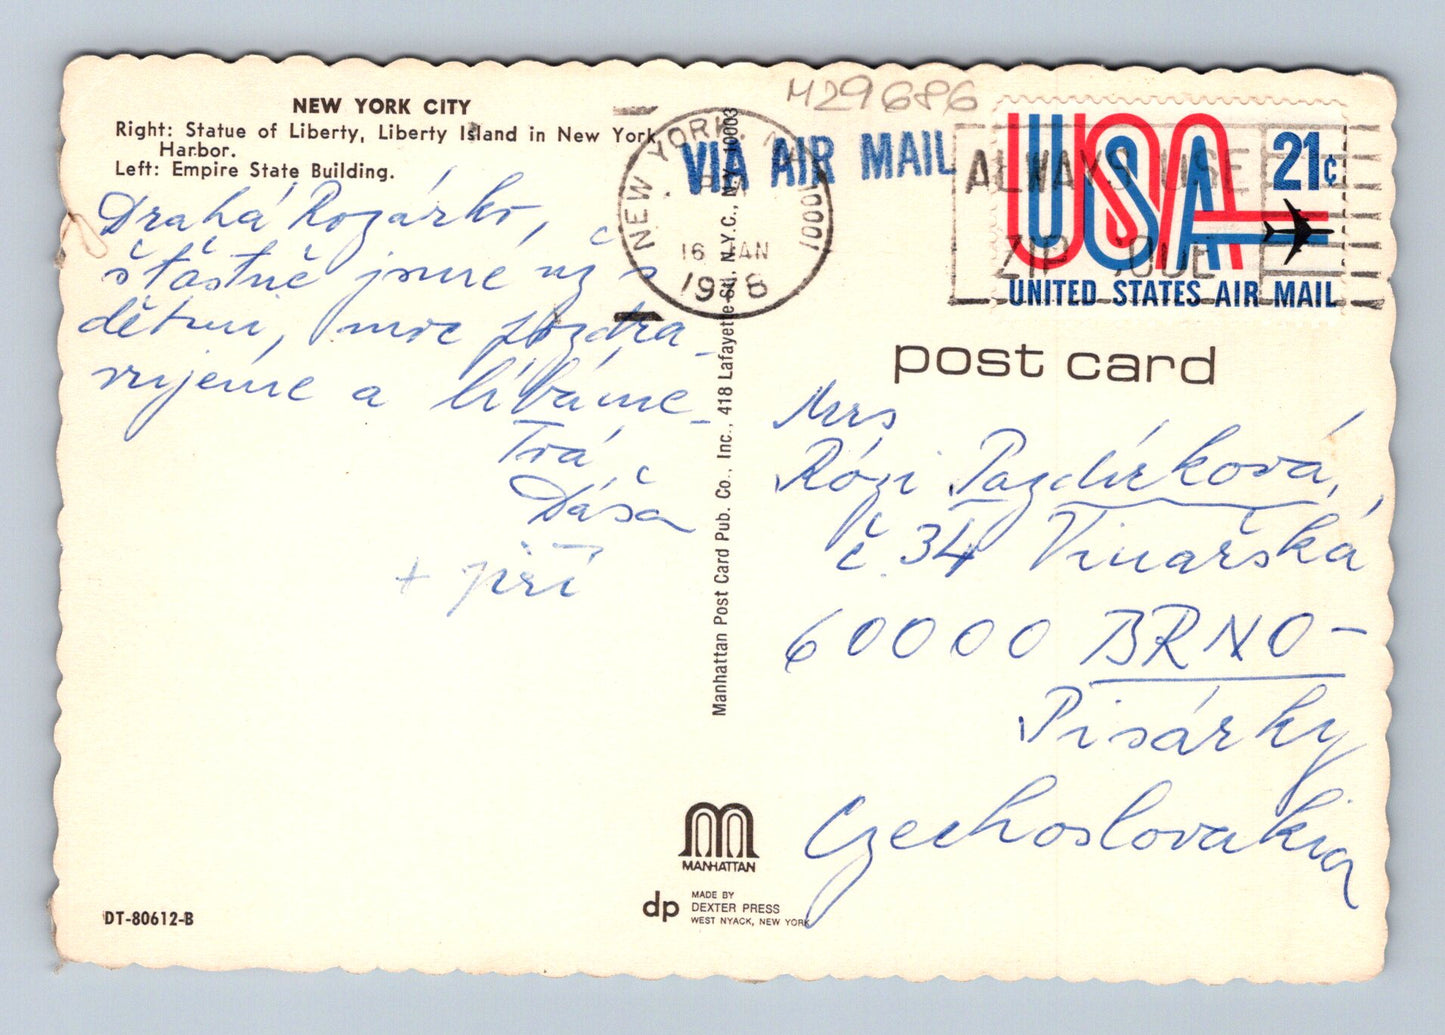 NEW YORK CITY
Right: Statue of Liberty, Liberty Island in New York
Harbor.
Left: Empire State Building.
Drahá Rozárko,
šťastně jsme už s
dětmi, moc pozdra-
vujeme a líbáme-
Tvá
Dáša
+ Jiří
DT-80612-B
Manhattan Post Card Pub. Co., Inc., 418 Lafayette St., N.Y.C., N.Y. 10003
MANHATTAN
dp
MADE BY
DEXTER PRESS
WEST NYACK, NEW YORK
H29686
NEW YORK, N.Y. 10001
16 JAN
VIA AIR MAIL
ALWAYS USE
ZIP CODE
USA
21¢
UNITED STATES AIR MAIL
post card
Mrs
Rózi Pazdírková,
č. 34 Vinařská
60000 BRNO-
Pisárky
Czechoslovakia